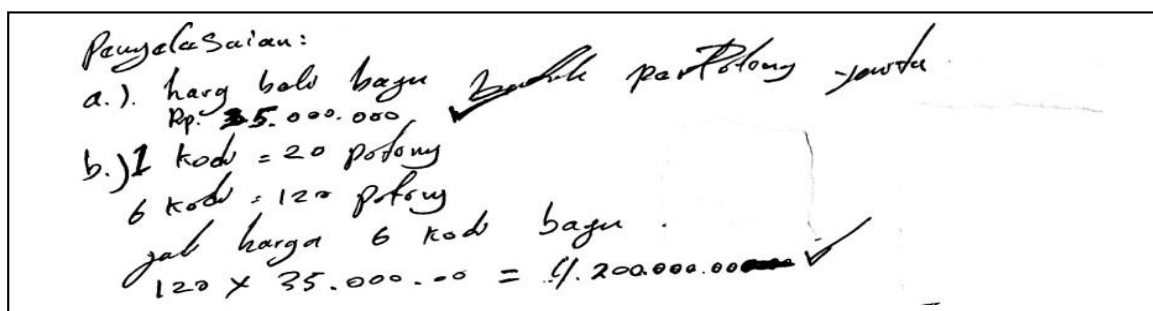 Penyelesaian:
a.). harg beli bagu batik perPotong yaitu
Rp. 35.000.000
b.) 1 kodi = 20 potong
6 kodi = 120 potong
jadi harga 6 kodi bagu.
120 x 35.000.00 = 4.200.000.00